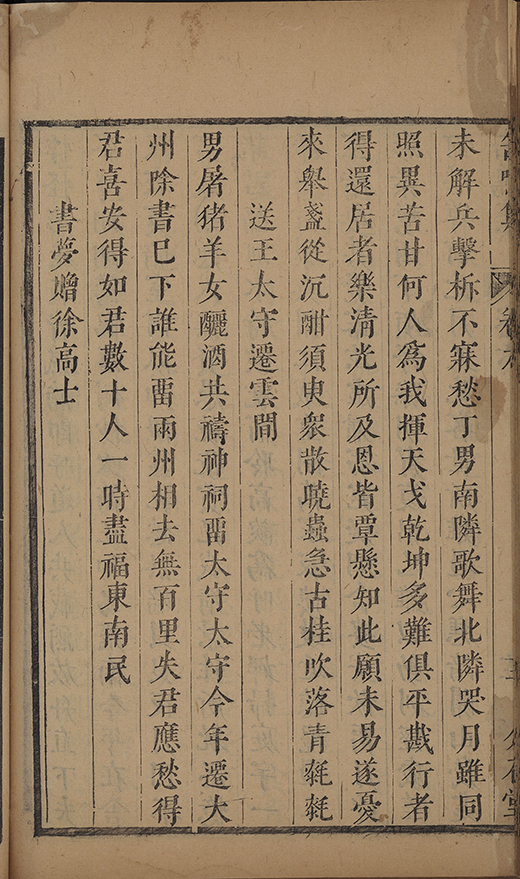 未解兵擊柝不寐愁丁男南隣歌舞北隣哭月雖同
照異苦甘何人為我揮天戈乾坤多難俱平戡行者
得還居者樂清光所及恩皆覃懸知此願未易遂憂
來舉盞從沉酣須臾衆散曉蟲急古桂吹落青毿毿
送王太守遷雲間
男屠猪羊女釃酒共禱神祠畱太守太守今年遷大
州除書已下誰能畱兩州相去無百里失君應愁得
君喜安得如君數十人一時盡福東南民
書夢贈徐高士